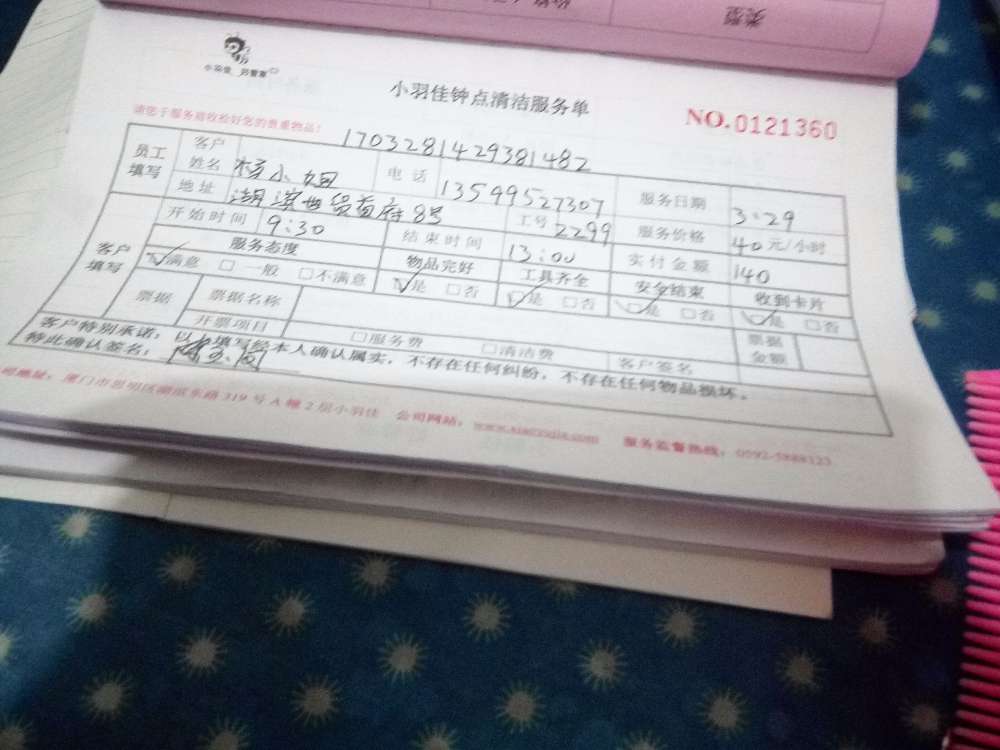 类型
小羽佳 好管家
小羽佳钟点清洁服务单
NO.0121360
请您于服务前收拾好您的贵重物品!
1703281429381482
员工填写 客户姓名 杨小姐 电话 13599527307 服务日期 3.29
地址 湖滨世贸首府8号 工号 2299 服务价格 40元/小时
客户填写 开始时间 9:30 结束时间 13:00 实付金额 140
服务态度 物品完好 工具齐全 安全结束 收到卡片
满意 □一般 □不满意 是 □否 是 □否 是 □否 是 □否
票据 票据名称 票据金额
开票项目 □服务费 □清洁费 客户签名
客户特别承诺:以上填写经本人确认属实,不存在任何纠纷,不存在任何物品损坏。
特此确认签名:
司地址:厦门市思明区湖滨东路319号A幢2层小羽佳 公司网站: 服务监督热线: